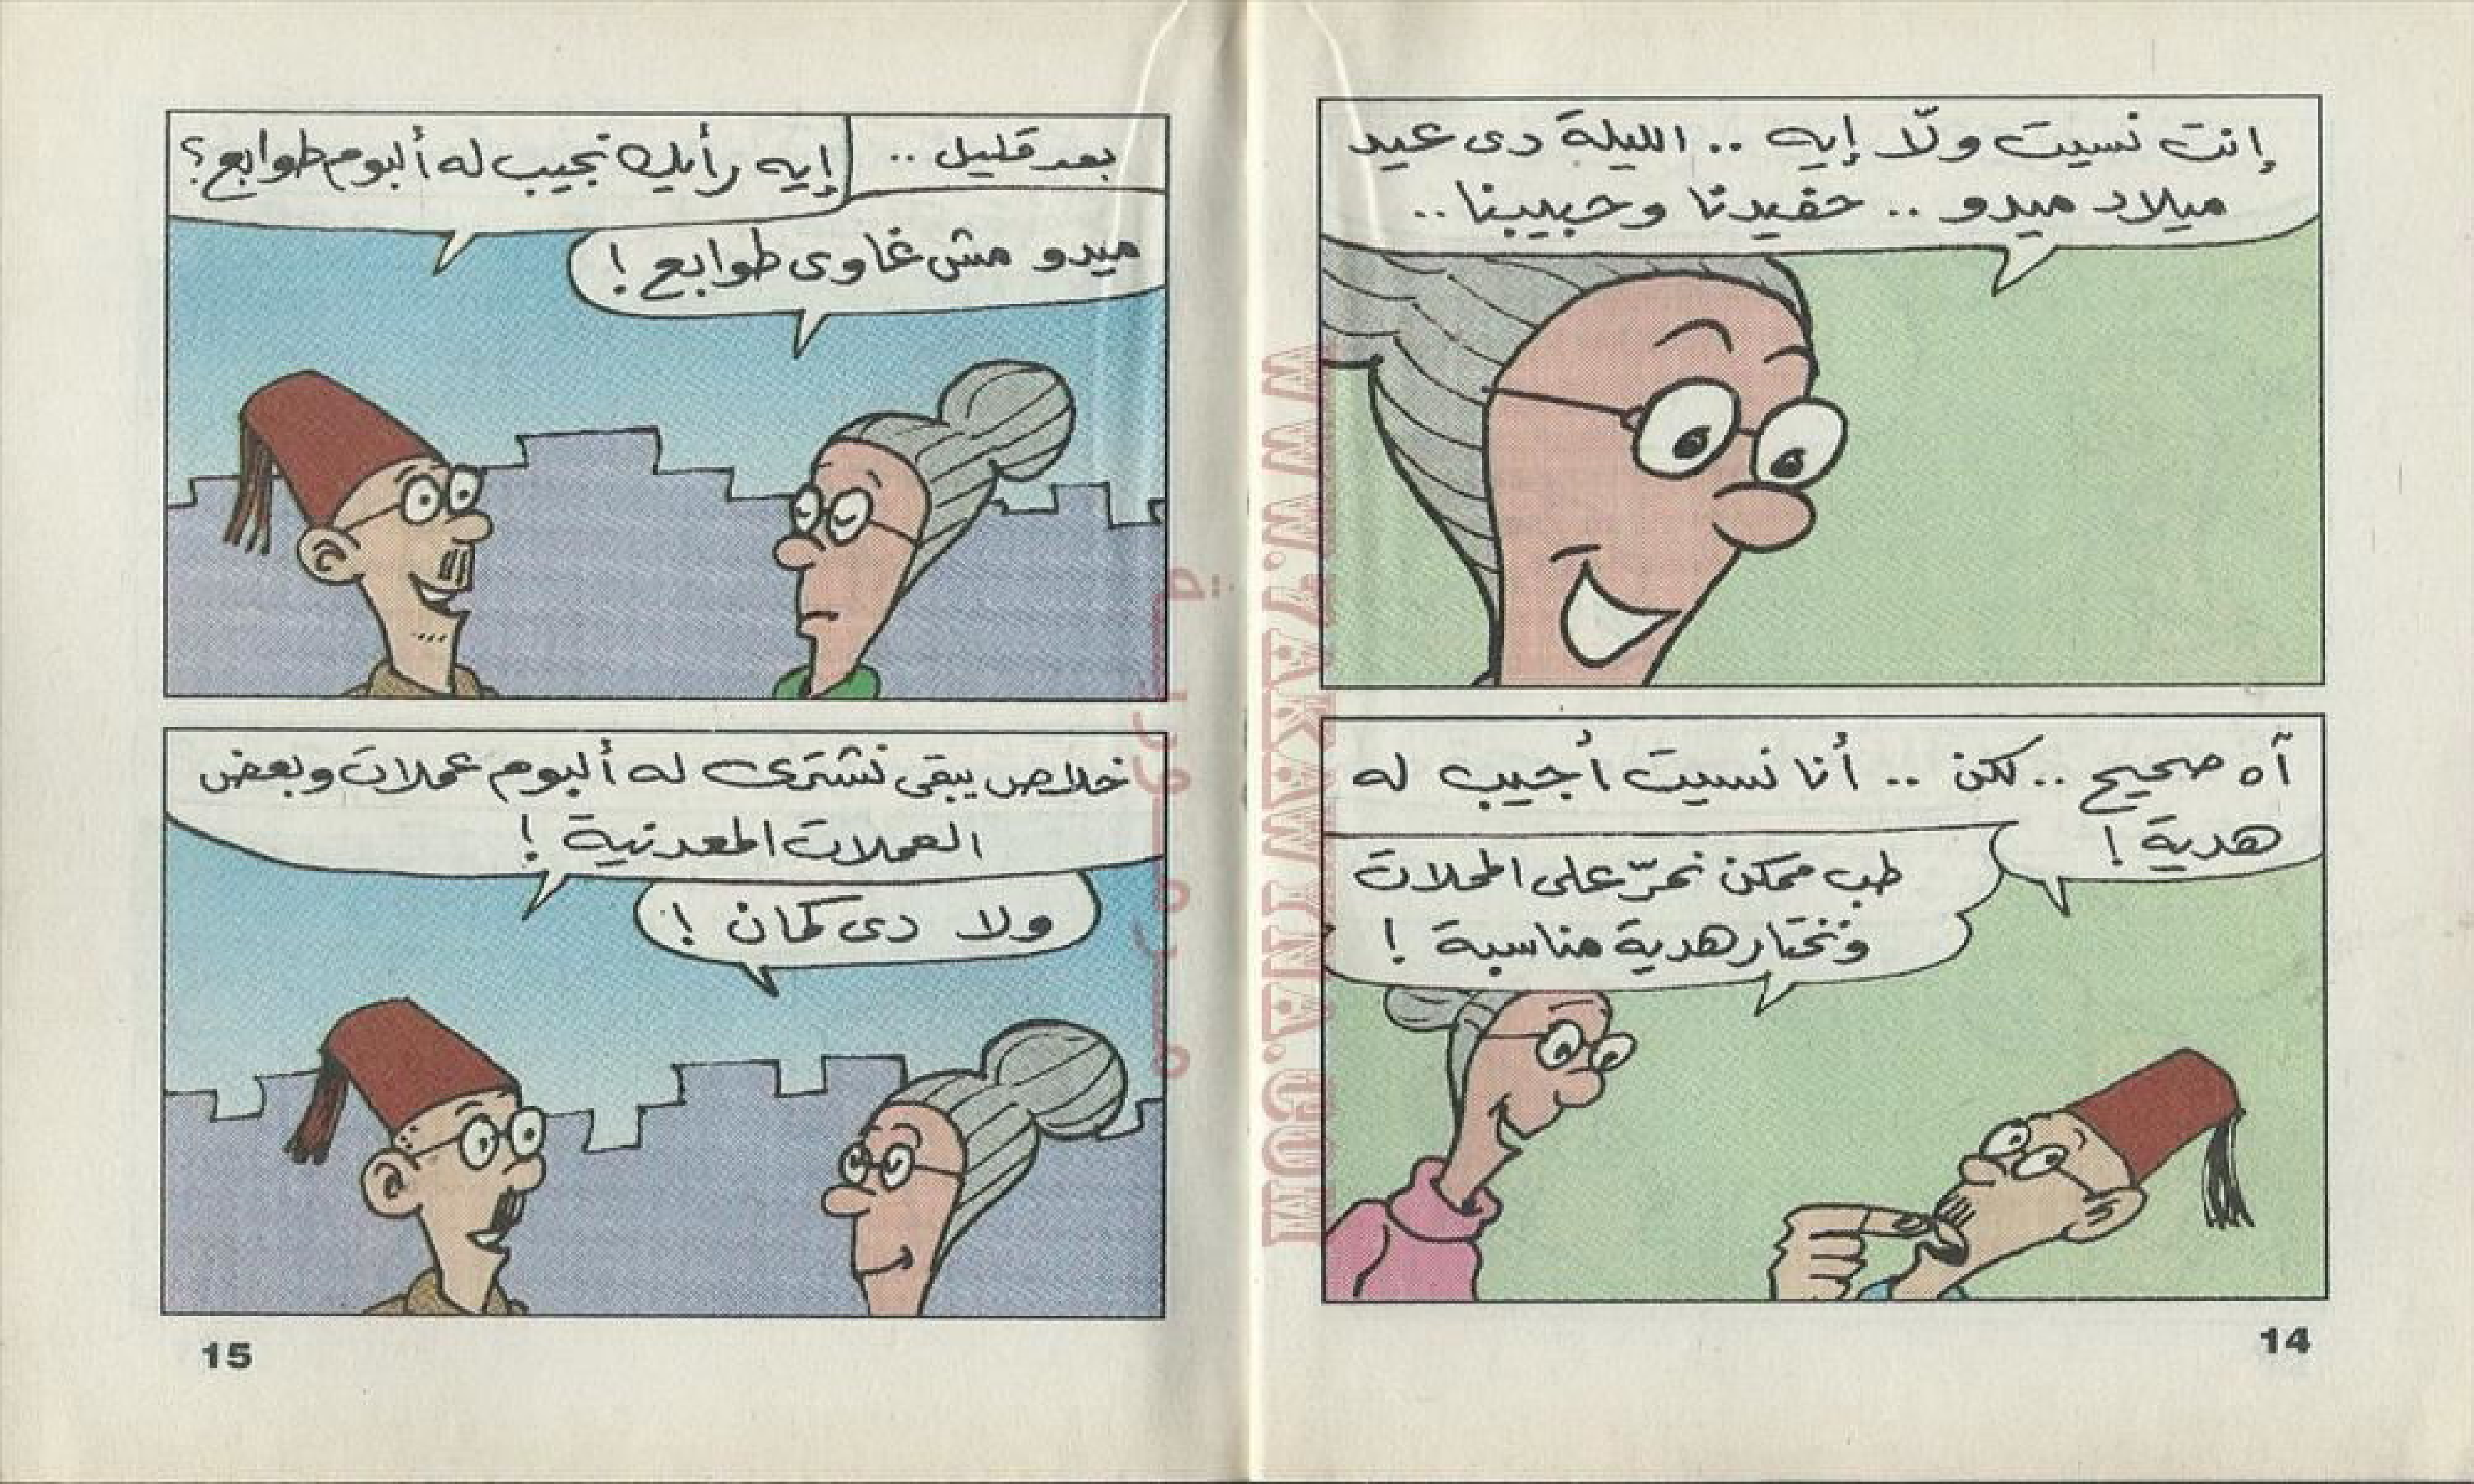 إنت نسيت ولّا إيه .. الليلة دى عيد
ميلاد ميدو .. حفيدنا وحبيبنا ..
آه صحيح .. لكن .. أنا نسيت أجيب له
هدية !
طب ممكن نمرّ على المحلات
ونختار هدية مناسبة !
14
بعد قليل ..
إيه رأيك نجيب له ألبوم طوابع ؟
ميدو مش غاوى طوابع !
خلاص يبقى نشترى له ألبوم عملات وبعض
العملات المعدنية !
ولا دى كمان !
15